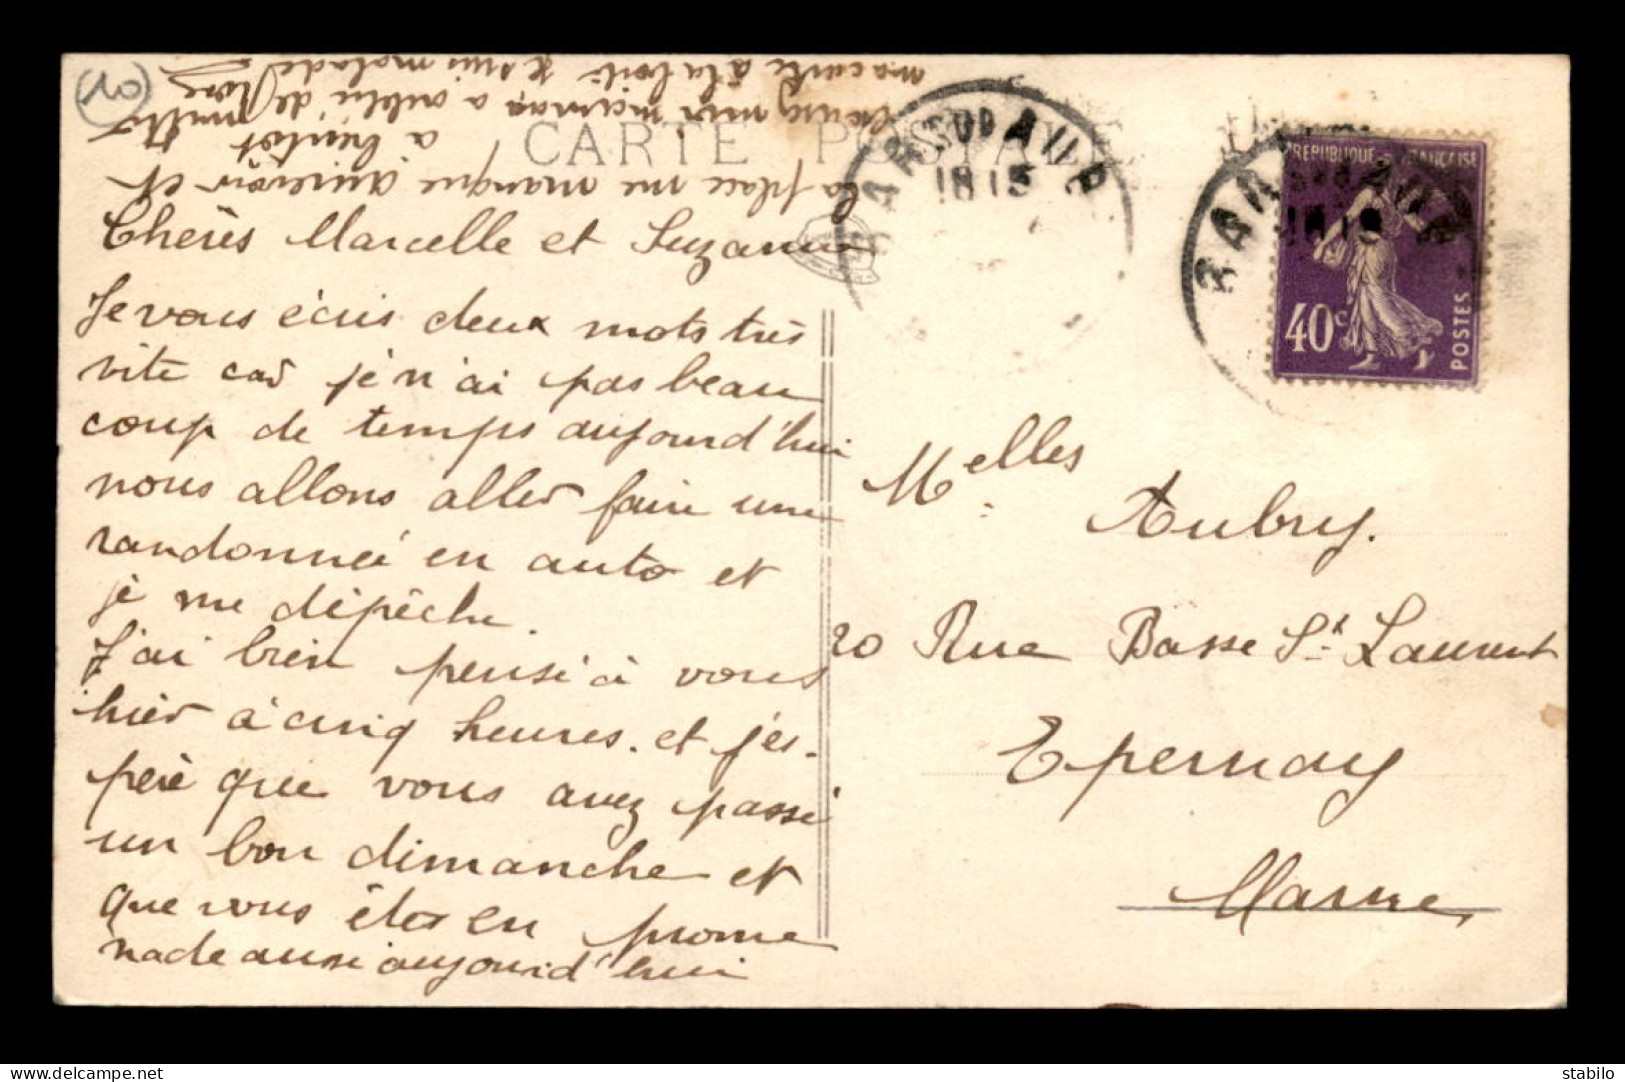 10
CARTE POSTALE
BAR-SUR-AUBE
18 15
RÉPUBLIQUE FRANÇAISE
40c
POSTES
Chères Marcelle et Suzanne
Je vous écris deux mots très
vite car je n'ai pas beau
coup de temps aujourd'hui
nous allons aller faire une
randonneé en auto et
je me dépêche.
J'ai bien pensé à vous
hier à cinq heures. et j'es-
père que vous avez passé
un bon dimanche et
que vous êtes en prome
nade aussi aujourd'hui
la place me manque aurevoir et
à bientôt
maman a oublié de
ma carte à la boîte je suis malade
Melles
Aubry.
20 Rue Basse St Laurent
Epernay
Marne
delcampe.net
stabilo